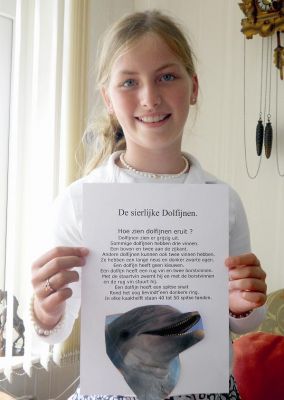 De sierlijke Dolfijnen.
Hoe zien dolfijnen eruit ?
Dolfijnen zien er grijzig uit.
Sommige dolfijnen hebben drie vinnen.
Een boven en twee aan de zijkant.
Andere dolfijnen kunnen ook twee vinnen hebben.
Ze hebben een lange neus en donker zwarte ogen.
Een dolfijn heeft geen kieuwen.
Een dolfijn heeft een rug vin en twee borstvinnen.
Met de staartvin zwemt hij en met de borstvinnen
en de rug vin stuurt hij.
Een dolfijn heeft een spitse snuit
Rond het oog bevindt een donkere ring.
In elke kaakhelft staan 40 tot 50 spitse tanden.